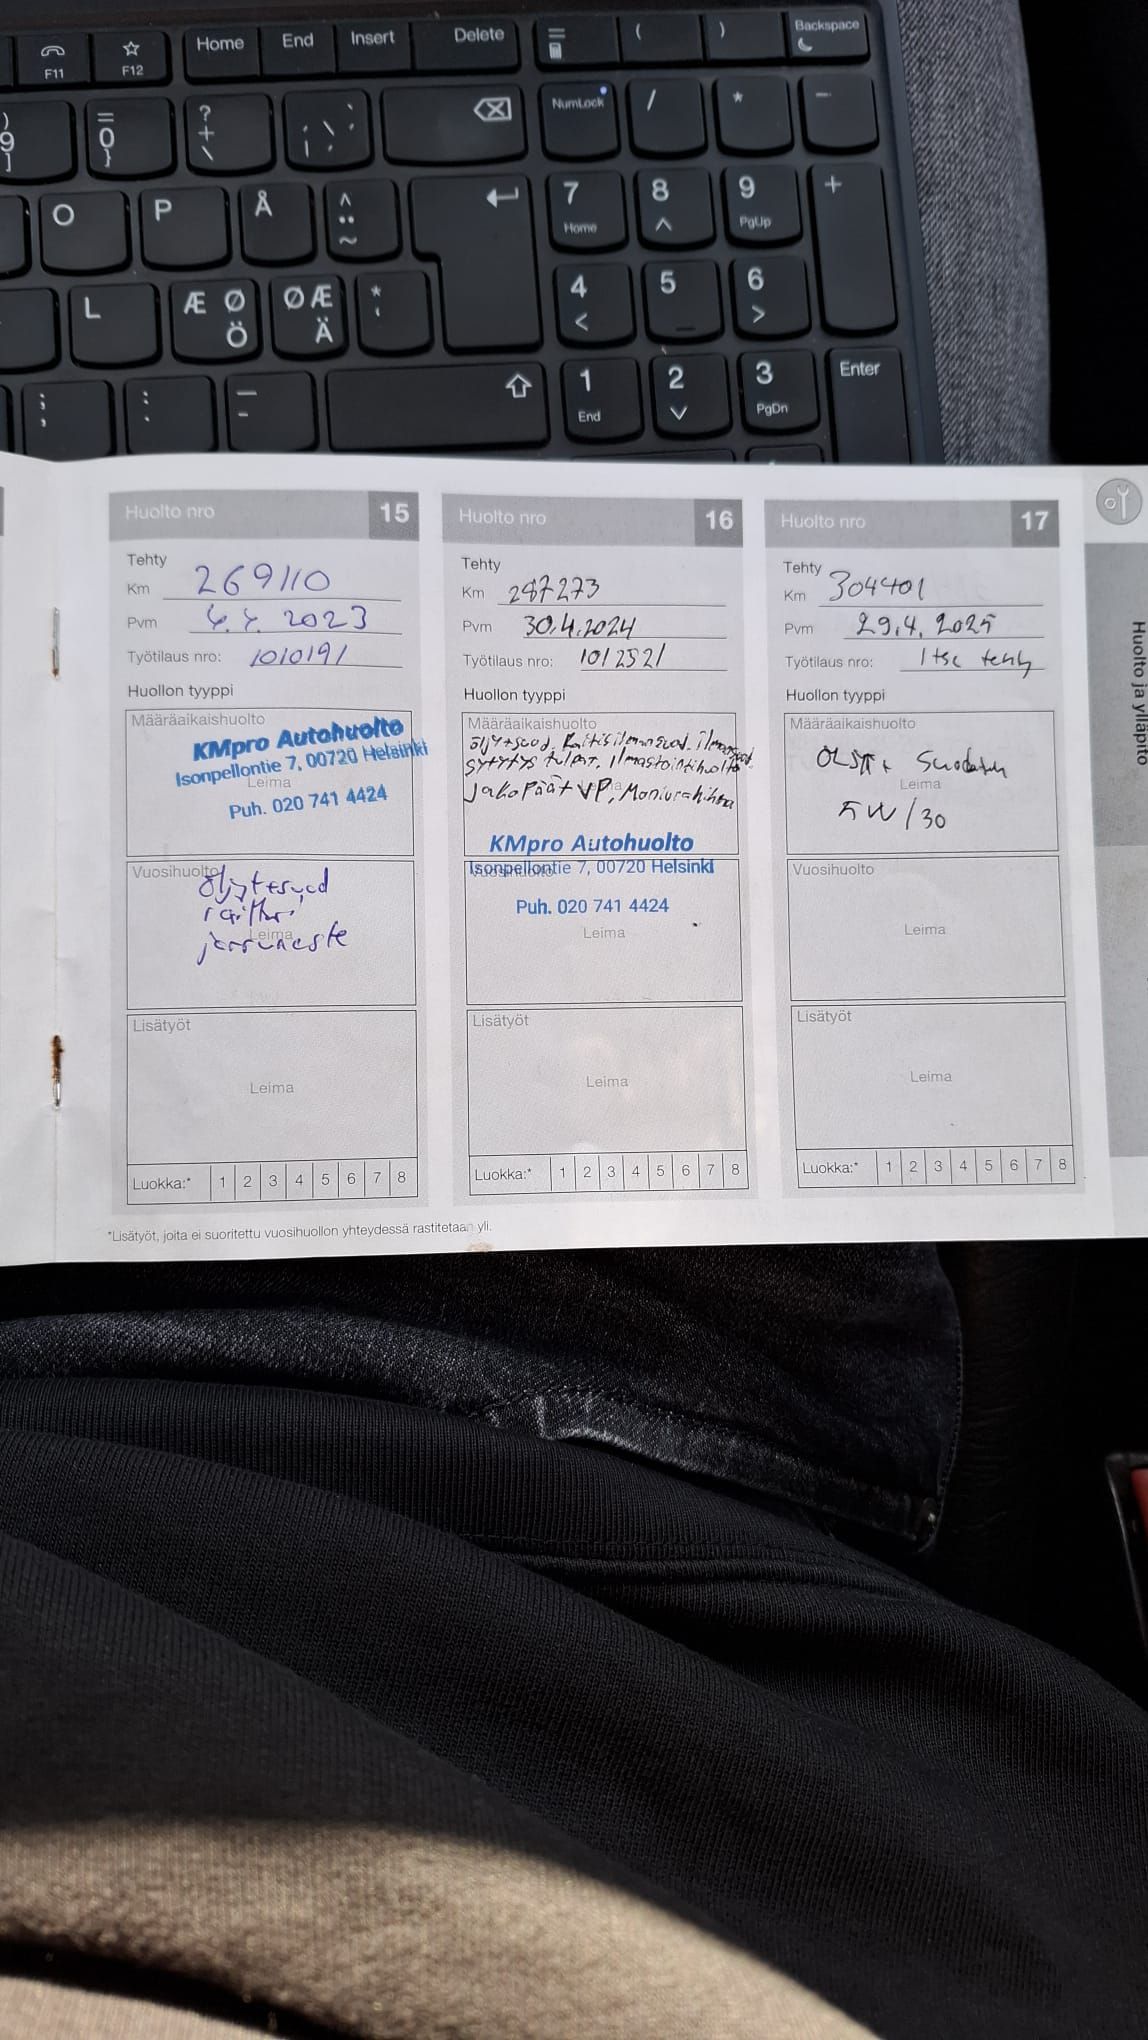 F11
F12
Home
End
Insert
Delete
(
)
Backspace
)
9
]
=
0
}
?
+
\
NumLock
/
*
-
O
P
Å
^
¨
~
7
Home
8
9
PgUp
+
L
Æ Ø
Ö
Ø Æ
Ä
*
'
4
<
5
6
>
;
,
:
.
_
-
1
End
2
3
PgDn
Enter
Huolto nro 15
Tehty
Km 269110
Pvm 4.4. 2023
Työtilaus nro: 1010191
Huollon tyyppi
Määräaikaishuolto
KMpro Autohuolto
Isonpellontie 7, 00720 Helsinki
Leima
Puh. 020 741 4424
Vuosihuolto
Öljyt+suod
raitis.
Leima
jarruneste
Lisätyöt
Leima
Luokka:* 1 2 3 4 5 6 7 8
Huolto nro 16
Tehty
Km 287273
Pvm 30.4.2024
Työtilaus nro: 1012521
Huollon tyyppi
Määräaikaishuolto
öljyt+suod. Raitisilmansuod. ilmansuod.
sytytys tulpat. Ilmastointihuolto
Jakopäät VP, Moniurahihna
KMpro Autohuolto
Isonpellontie 7, 00720 Helsinki
Vuosihuolto
Puh. 020 741 4424
Leima
Lisätyöt
Leima
Luokka:* 1 2 3 4 5 6 7 8
Huolto nro 17
Tehty
Km 304401
Pvm 29.4. 2025
Työtilaus nro: Itse tehty
Huollon tyyppi
Määräaikaishuolto
ÖLJYT + Suodatin
Leima
5W/30
Vuosihuolto
Leima
Lisätyöt
Leima
Luokka:* 1 2 3 4 5 6 7 8
*Lisätyöt, joita ei suoritettu vuosihuollon yhteydessä rastitetaan yli.
Huolto ja ylläpito